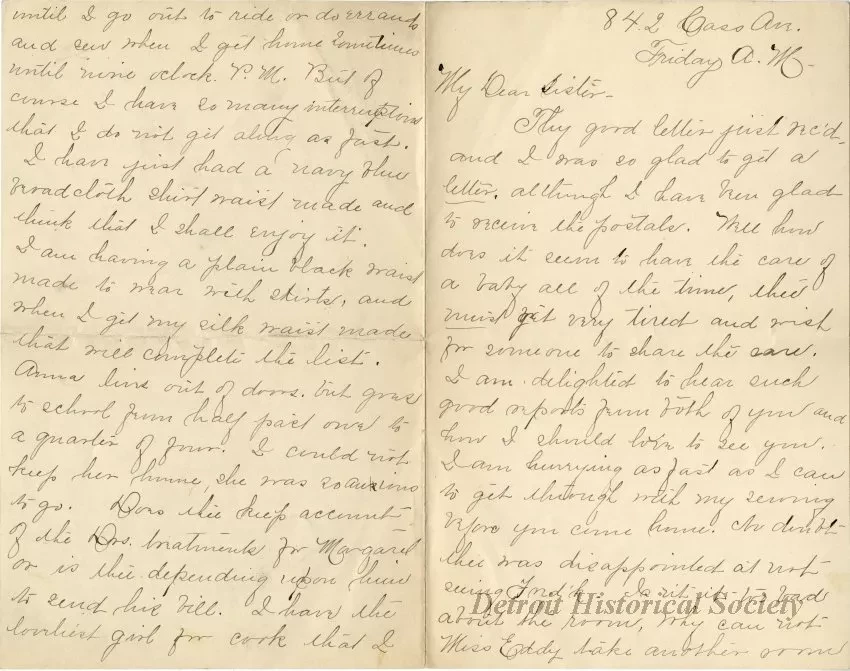 842 Cass Ave.
Friday A.M-
My Dear Sister-
Thy good letter just rec'd-
and I was so glad to get a
letter, although I have been glad
to receive the postals. Well how
does it seem to have the care of
a baby all of the time, thee
must get very tired and wish
for someone to share the care.
I am delighted to hear such
good reports from both of you and
how I should love to see you.
I am hurrying as fast as I can
to get through with my sewing
before you come home. No doubt
thee was disappointed at not
seeing Fred'k. Isn't it too bad
about the room, why can not
Miss Eddy take another room
until I go out to ride or do errands
and sew when I get home sometimes
until nine oclock P.M. But of
course I have so many interruptions
that I do not get along as fast.
I have just had a navy blue
broadcloth shirt waist made and
think that I shall enjoy it.
I am having a plain black waist
made to wear with skirts, and
when I get my silk waist made
that will complete the list.
Anna lives out of doors. but goes
to school from half past one to
a quarter of four. I could not
keep her home, she was so anxious
to go. Does thee keep account
of the Drs. treatments for Margaret
or is thee depending upon him
to send his bill. I have the
loveliest girl for cook that I
Detroit Historical Society